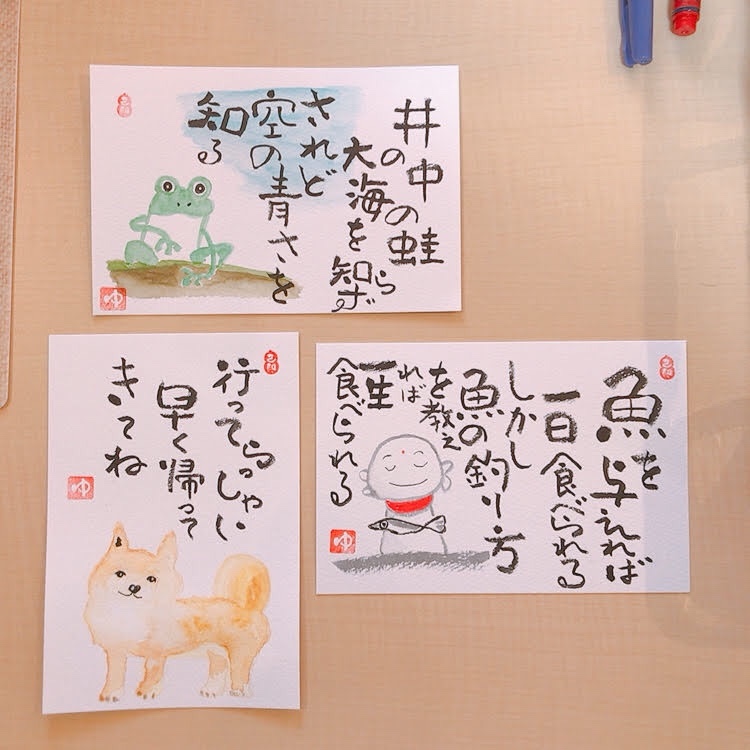 井の中の蛙
大海を知らず
されど
空の青さを
知る
ゆ
行ってらっしゃい
早く帰って
きてね
ゆ
魚を与えれば
一日食べられる
しかし
魚の釣り方
を教え
れば
一生
食べられる
ゆ